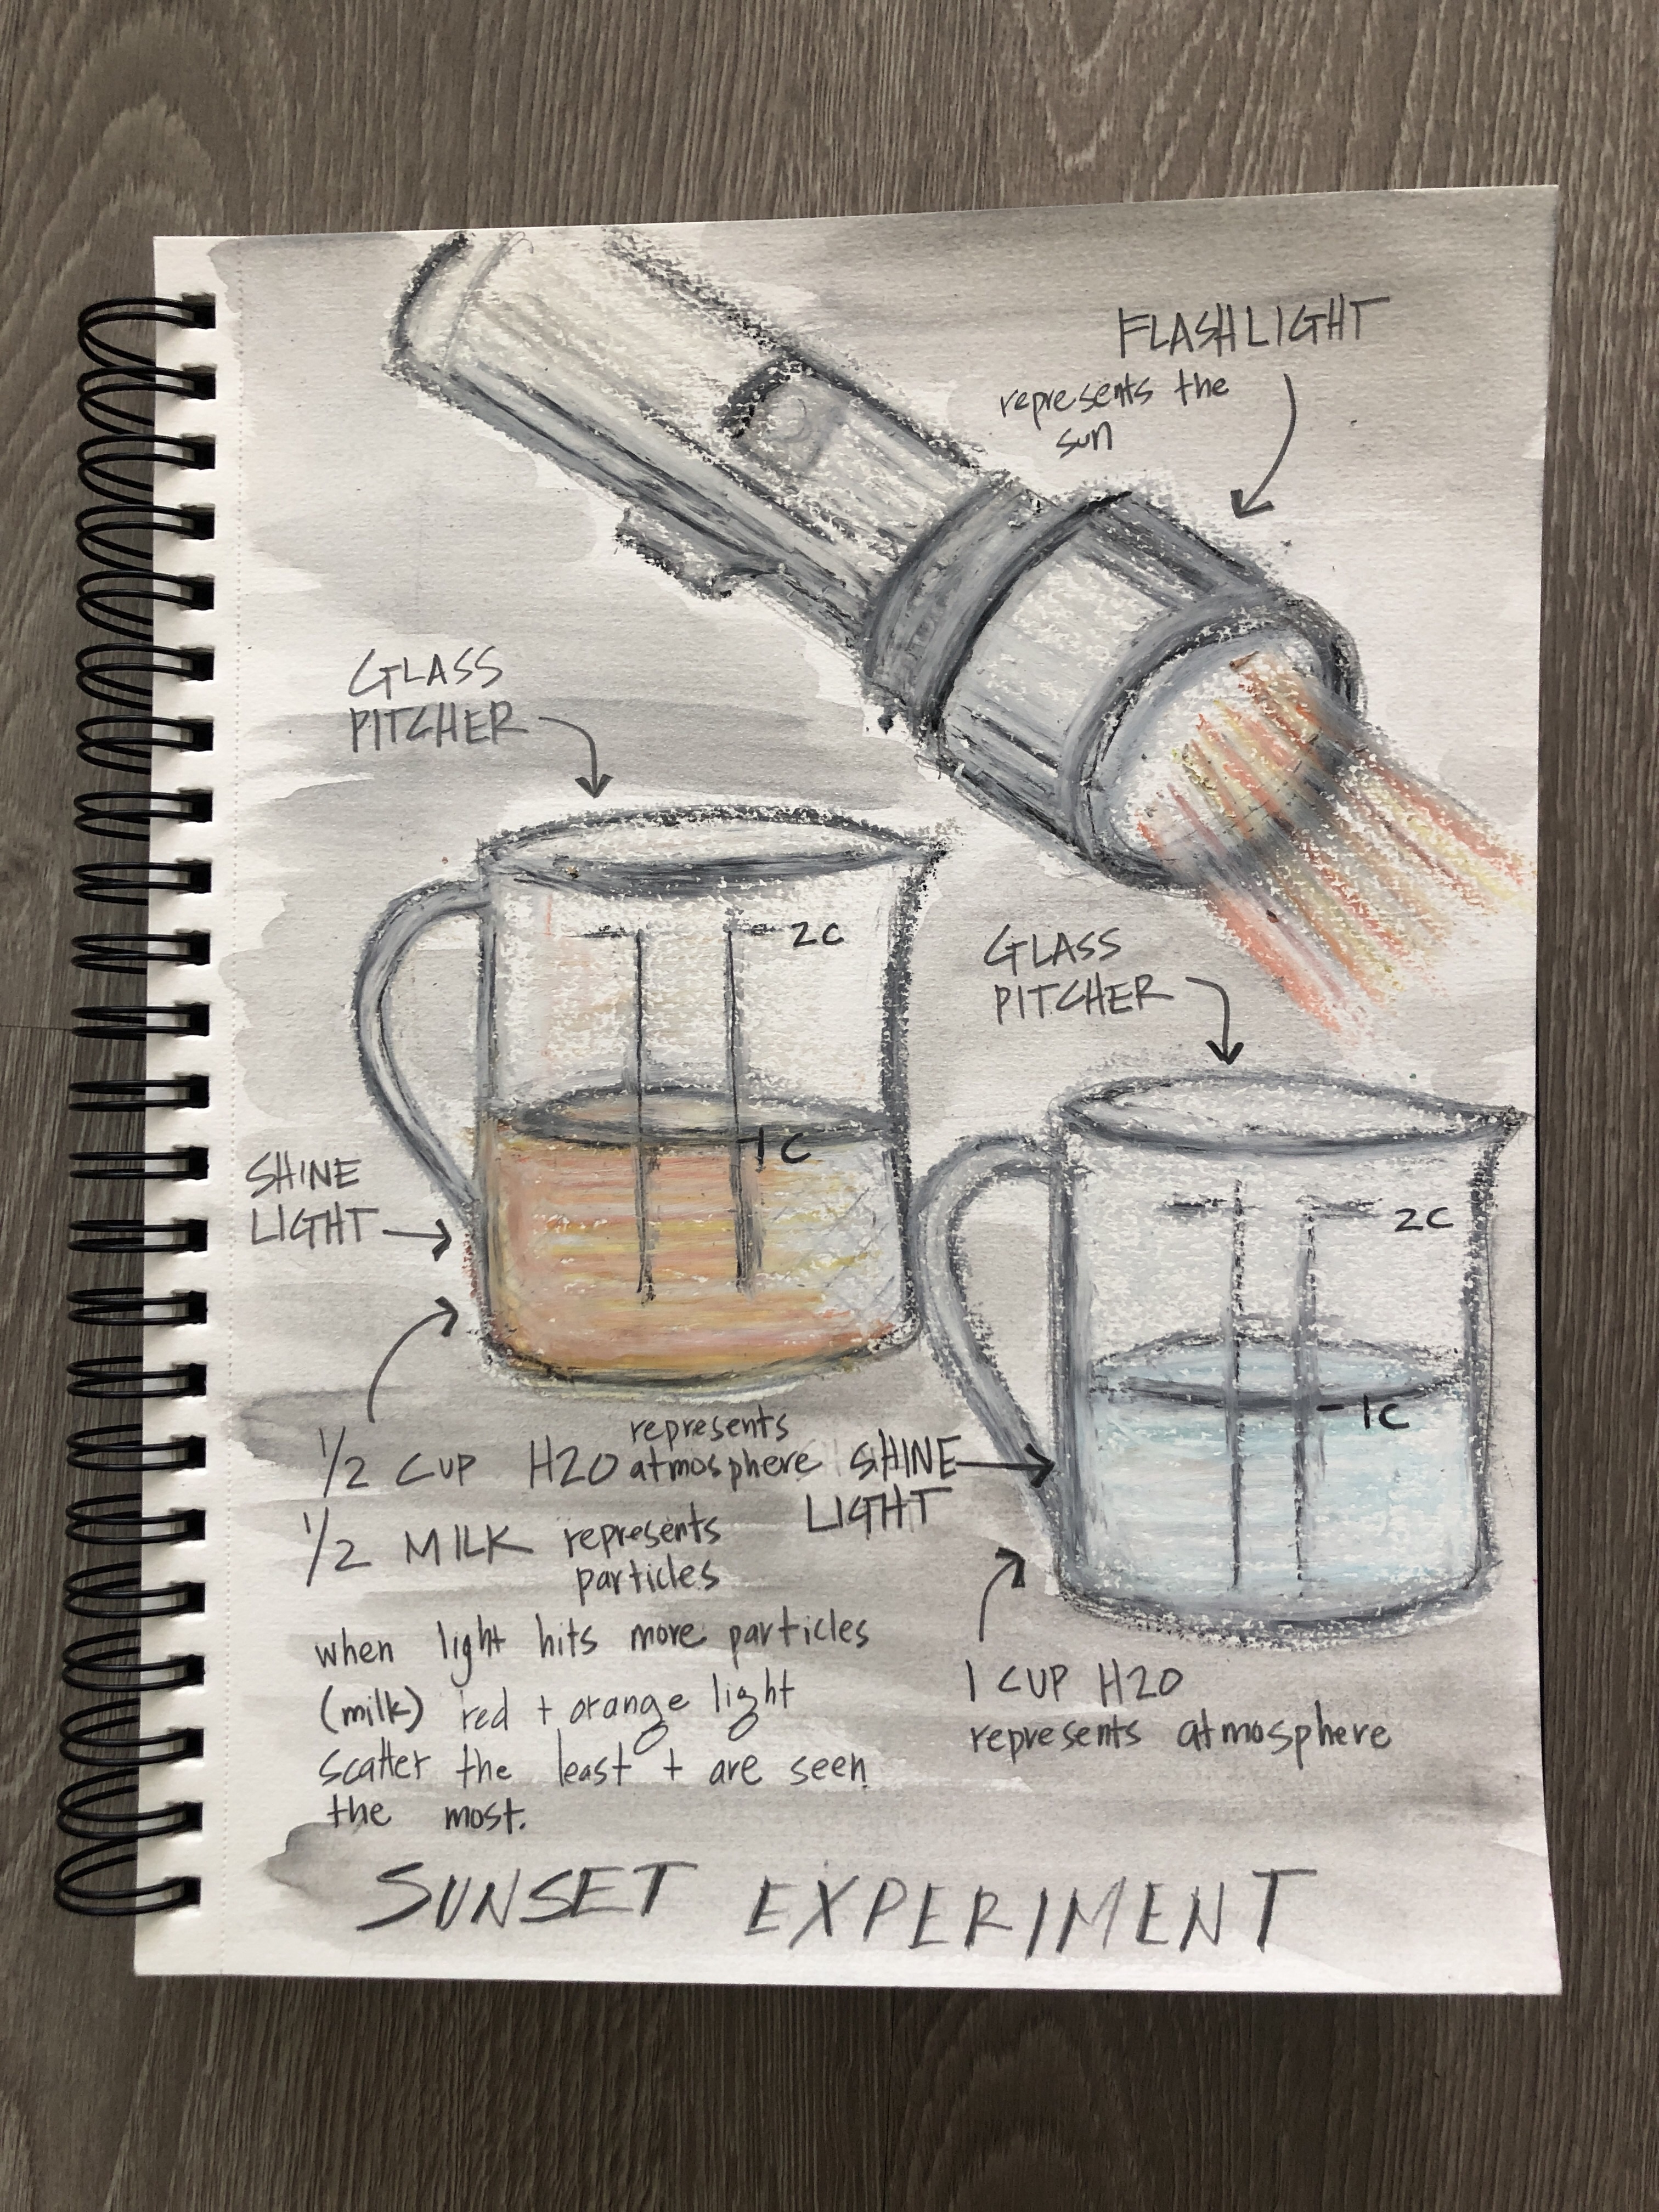 FLASHLIGHT
represents the
sun
GLASS
PITCHER
2C
1C
SHINE
LIGHT
GLASS
PITCHER
2C
1C
SHINE
LIGHT
1/2 CUP H2O represents
atmosphere
1/2 MILK represents
particles
when light hits more particles
(milk) red + orange light
scatter the least + are seen
the most.
1 CUP H2O
represents atmosphere
SUNSET EXPERIMENT